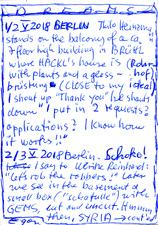 D R E A M S
1/2 V 2018 BERLIN Thilo Heinzmann
stands on the balcony of a ca.
7 floor high building in BRÜEL
where HACKL's house is (Rohn
with plants and a glass - hof)
brüstung (CLOSE to my ideal)
I shout up "Thank You" he shouts
down "I put in 2 requests?
applications? I know how
it works!"
2/3 V 2018 Berlin. Schoko!
I say to Ulrike Reinhard:
"Let's rob the robbers!" Later
we see in the basement a
small box "schatulle" with
GEMS, cut and uncut. I
then, SYRIA → cont'd